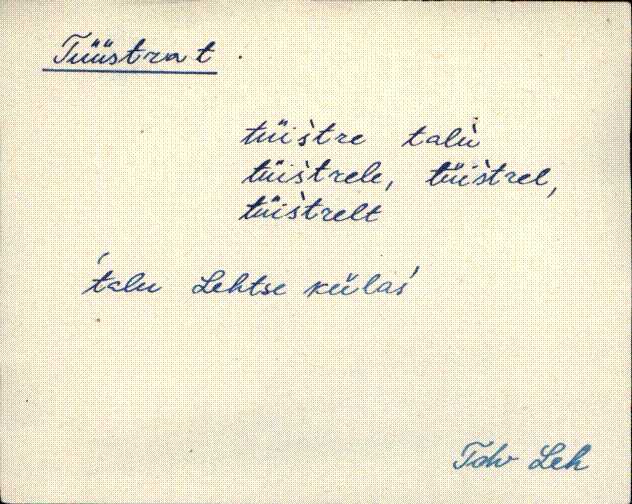 Tüüstra t.
tüìstre talù
tüìstrele, tüìstrel,
tüìstrelt
'talu Lehtse külas
Tdv Leh